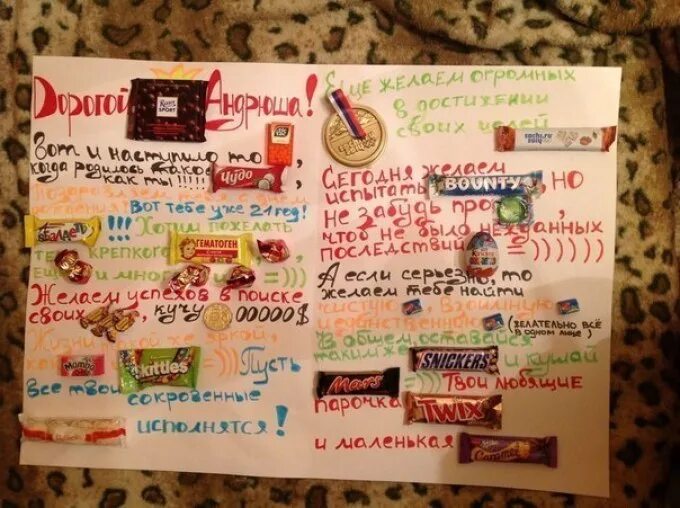 Дорогой
RITTER SPORT
Андрюша!
Вот и наступило то
tic tac
,
когда родилось такое
Чудо
,
как ты!!!!!
Поздравляем тебя с днём
рождения! Вот тебе уже 21 год!
!!! Хотим пожелать
те крепкого
ГЕМАТОГЕН
,
ещё и много
=)))
Желаем успехов в поиске
своих
, кучу
00000$
Жизни
же яркой,
Mamba
Skittles
=)))) Пусть
все твои сокровенные
исполнятся!
Ещё желаем огромных
в достижении
своих целей
sochi.ru
2014
Сегодня желаем
испытать
BOUNTY
, но
не забудь про
,
чтоб не было нежданных
последствий =))))))
А если серьезно, то
желаем тебе найти
чистую, взаимную
и единственную
(желательно всё
в одном лице)
В общем оставайся
таким же
SNICKERS
и кушай
Mars
=)))) Твои любящие
парочка
TWIX
и маленькая
Milka
Caramel